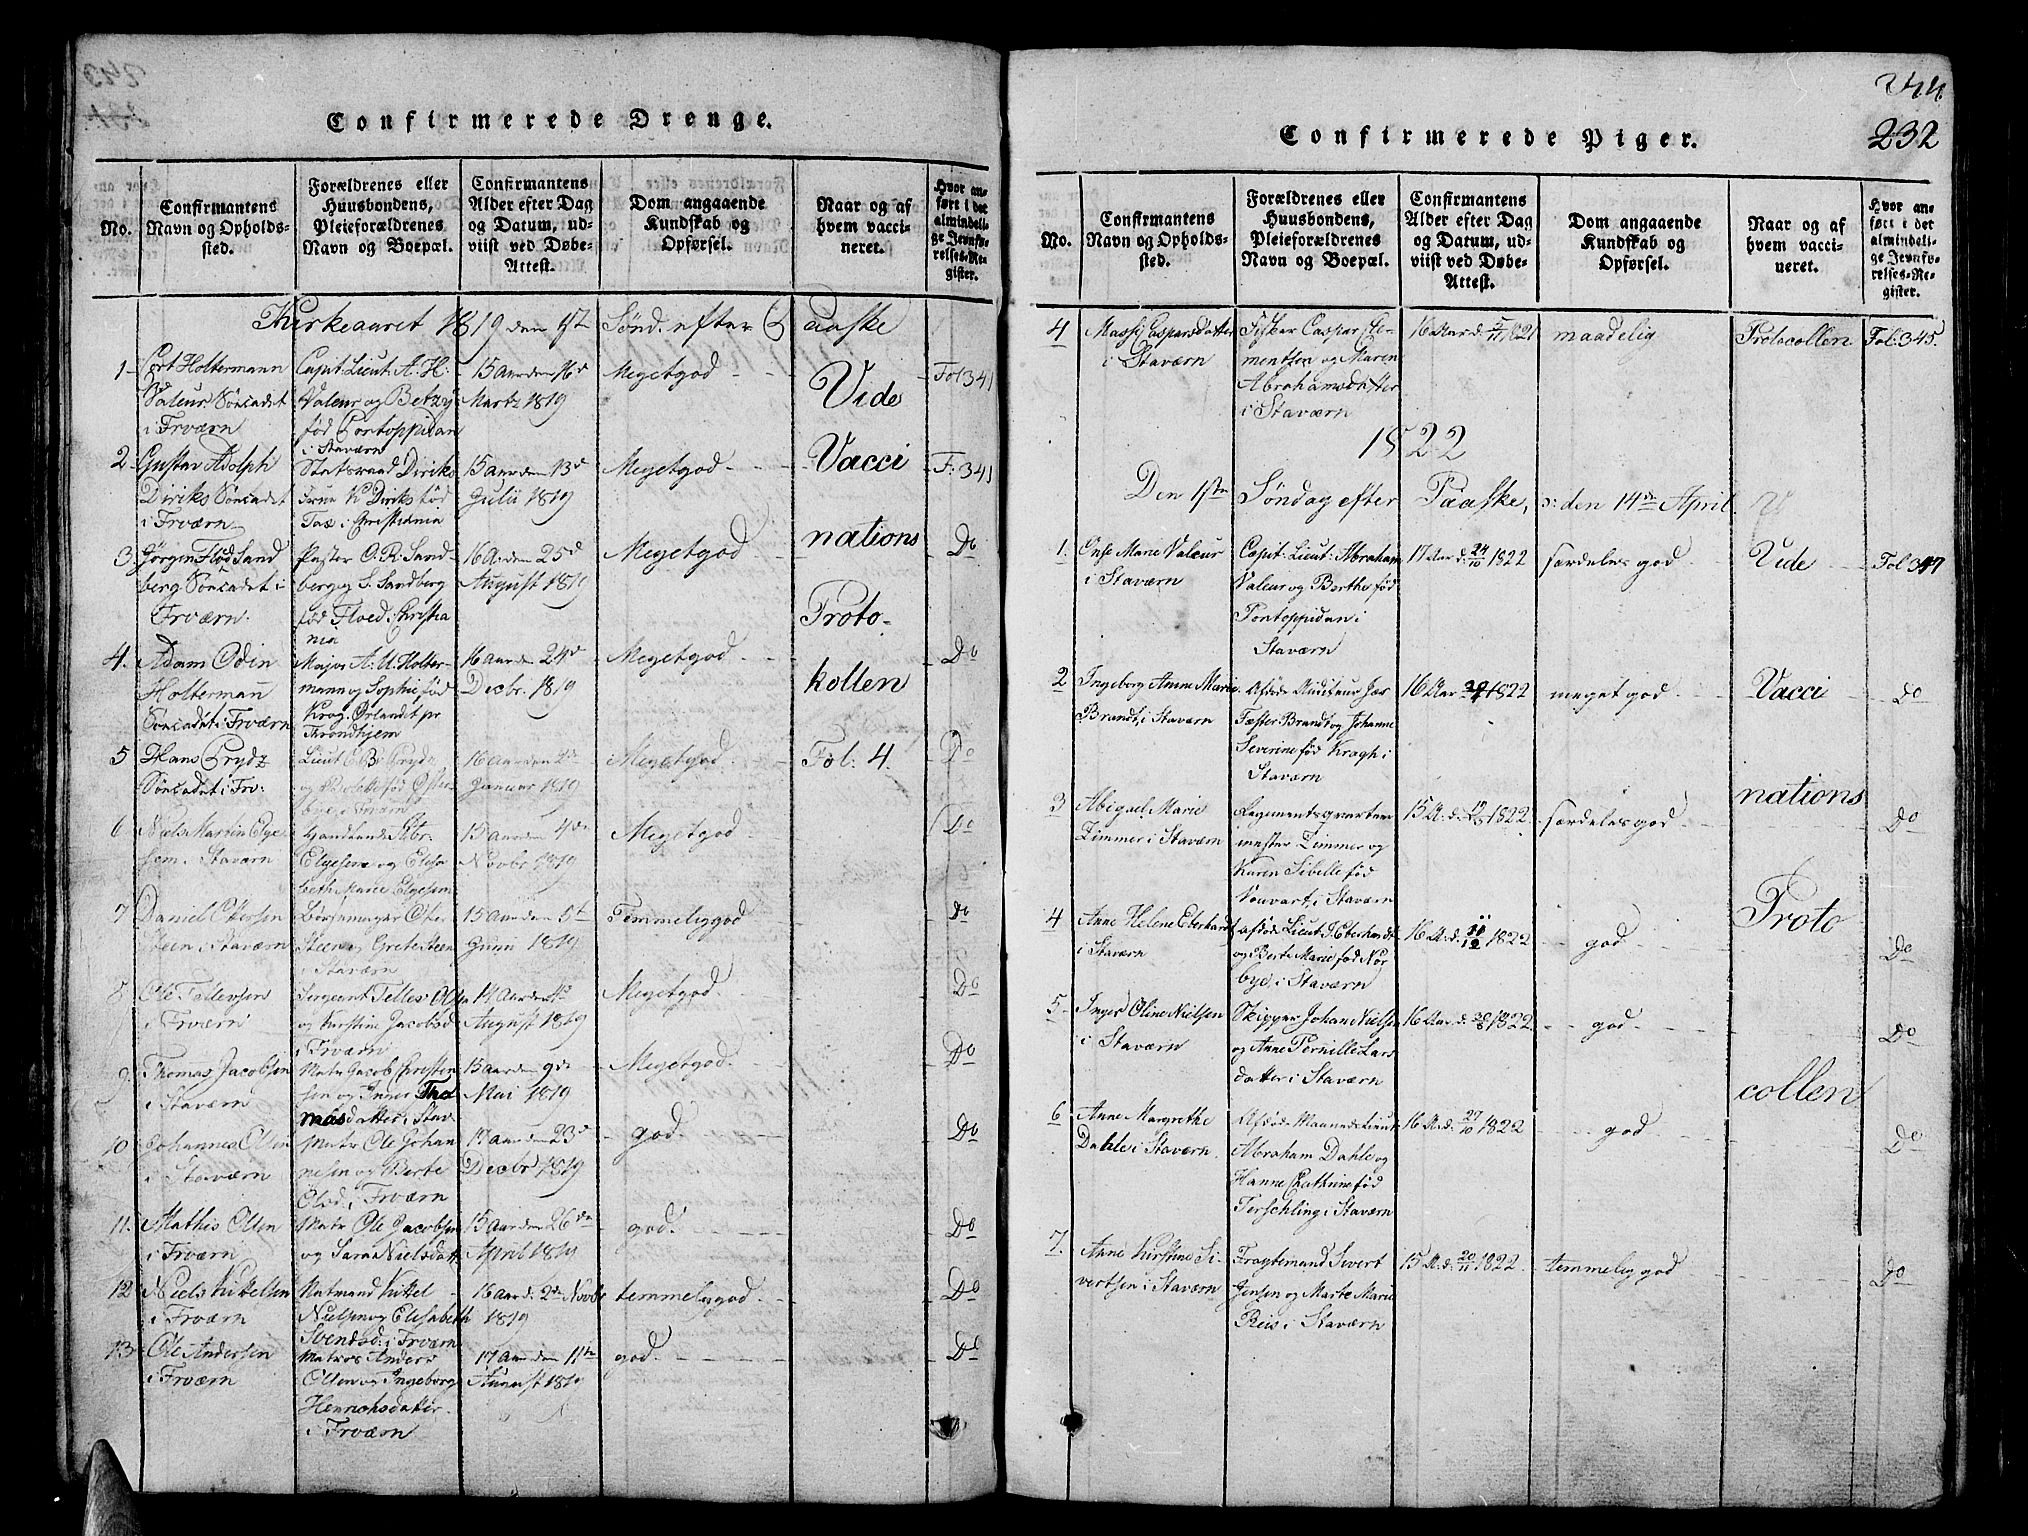 Confirmerede Drenge.
No.
Confirmantens
Navn og Opholds-
sted.
Forældrenes eller
Huusbondens,
Pleieforældrenes
Navn og Boepæl.
Confirmantens
Alder efter Dag
og Datum, ud-
viist ved Døbe-
Attest.
Dom angaaende
Kundskab og
Opførsel.
Naar og af
hvem vacci-
neret.
Hvor an-
ført i det
almindeli-
ge Jevnfø-
relses-Re-
gister.
Kirkeaaret 1819 den 1ste Sønd. efter Paaske
1
Holtermann
Valeur. Søcadet
i Frværn
Capit. Lieut. A. H.
Valeur og Betzÿ
fød Pontoppidan
i Staværn
15 Aar den 16d
Martz 1819
Megetgod
Vide
Fol 341
2
Gustav Adolph
Diriks Søcadet
i Frværn
Statsraad Diriks
Frue K Diriks fød
Tax i Christiania
15 aar den 13d
Julii 1819
Megetgod
Vacci
F: 341
3
Jørgin Floed Sand
berg Søcadet i
Frværn.
Pastor O. R. Sand-
berg og S. Sandberg
fød Floed i Christia
nia
16 A. den 25d
August 1819
Megetgod
nations
Do
4.
Adam Odin
Holtermañ
Søcadet i Frværn
Major A. U. Holter-
mann og Sophie fød
Krog. Ørlandet pr
Trondhjem
16 aar den 24d
Decbr. 1819
Megetgod
Proto-
kollen
Do
5
Hans Prydz
Søcadet i Fr:
16 aar den 2den
Januar 1819
Megetgod
Fol. 4.
Do
6
Niels Martin Elge
sem. Staværn
Elgesem og Elisa
beth Marie Elgesem
15 aar den 4de
Novbr 1819
Megetgod
Do
7
Daniel Ottersen
Steen i Staværn
Steen og Grete Steen
i Staværn
15 Aar den 5t
Junii 1819
Temmeliggod
Do
8
Ole Tellevsen
i Frværn
Sergeant Tellef Olsn
og Kirstine Jacobsd
i Frværn
14 Aar den 4d
August 1819
Megetgod
Do
9
Thomas Jacobsen
i Staværn
Matr Jacob Christen
sen og Inger Tho
masdatter i Stav
15 aar den 9de
Mai 1819
Megetgod
Do
10
Johannes Olsen
i Staværn
Matr Ole Johan
nesen og Berte
Olsd. i Frværn
17 aar den 23d
Decbr 1819
god
Do
11.
Mathis Olsen
i Frværn
Matr Ole Jacobsen
og Sara Nielsdatt
15 aar den 26de
April 1819
god
Do
12
Niels Kittelsen
i Frværn
Matmand Kittel
Nielsen og Elisabeth
Svendsd: i Frværn
16 aar d. 2de Novbr
1819
temmeliggod
Do
13
Ole Andersen
i Frværn
Matros Anders
Olsen og Ingeborg
Henrichsdatter
i Frværn
17 Aar den 11te
August 1819
god
Do
244
232
Confirmerede Piger.
No.
Confirmantens
Navn og Opholds-
sted.
Forældrenes eller
Huusbondens,
Pleieforældrenes
Navn og Boepæl.
Confirmantens
Alder efter Dag
og Datum, ud-
viist ved Døbe-
Attest.
Dom angaaende
Kundskab og
Opførsel.
Naar og af
hvem vacci-
neret.
Hvor an-
ført i det
almindeli-
ge Jevnfø-
relses-Re-
gister.
4
Massi Caspersdatter
i Staværn
Fisker Casper Cle-
mentsen og Maren
Abrahamsdatter
i Staværn
16 Aar d. 5/11 1821
maadelig
Protocollen
Fol: 345.
1822
Den 1ste Søndag efter Paaske, ɔ: den 14de April
1.
Marie Valeur
i Staværn
Capit: Lieut: Abraham
Valeur og Berthe fød
Pontoppidan i
Staværn
17 Aar d. 24/10 1822
særdeles god
Vide
Fol 347
2
Ingeborg Anne Marie
Brandt, i Staværn
Afdøde Auditeur
Brandt og Johanne
Severine fød Kragh i
Staværn
16 Aar 1822
meget god
Vacci
Do
3
Abigael Marie
Zimmer i Staværn
Regimentsqvarteer
mester Zimmer og
Karen Sibelle fød
i Staværn
15 A. d. 1822
særdeles god
nations
Do
4
Anne Helene Eberhardt
i Staværn
afdøde Lieut Eberhardt
og Berte Marie fød Nor
bye, i Staværn
16 A. d. 11/12 1822
god
Proto
Do
5
Inger Oline Nielsen
i Staværn
Skipper Johan Nielsen
og Anne Pernille Lars
datter i Staværn
16 Aar d. 1822
god
Do
collen
6
Anne Margrethe
Dahle i Staværn
Afdøde Maanedslieut
Abraham Dahle og
Hanne Cathrine fød
Terschling i Staværn
16 A. d. 27/10 1822
god
Do
7.
Anne Kirstine Si
vertsen i Staværn
Fragtemand Sivert
Jensen og Marte Marie
Reis i Staværn
15 A. d. 20/11 1822.
temmelig god
Do